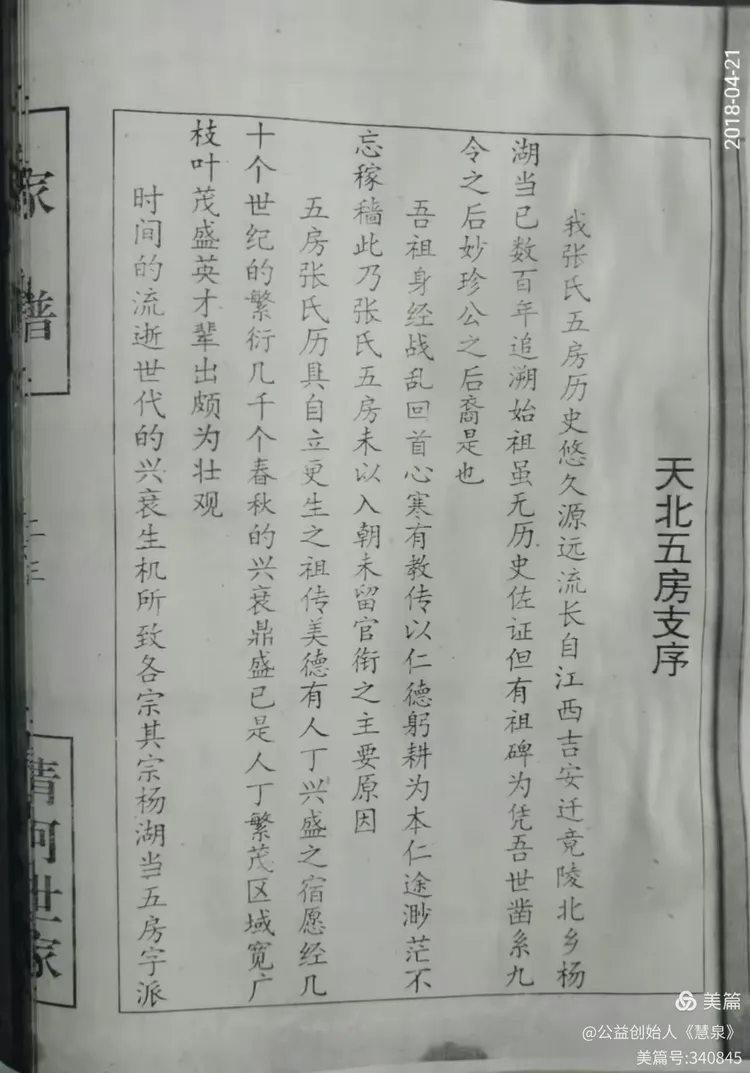 天北五房支序
我张氏五房历史悠久源远流长自江西吉安迁竟陵北乡杨
湖当已数百年追溯始祖虽无历史佐证但有祖碑为凭吾世凿系九
令之后妙珍公之后裔是也
吾祖身经战乱回首心寒有教传以仁德躬耕为本仁途渺茫不
忘稼穑此乃张氏五房未以入朝未留官衔之主要原因
五房张氏历具自立更生之祖传美德有人丁兴盛之宿愿经几
十个世纪的繁衍几千个春秋的兴衰鼎盛已是人丁繁茂区域宽广
枝叶茂盛英才辈出颇为壮观
时间的流逝世代的兴衰生机所致各宗其宗杨湖当五房字派
家谱
清河世家
2018-04-21
美篇
@公益创始人《慧泉》
美篇号:340845